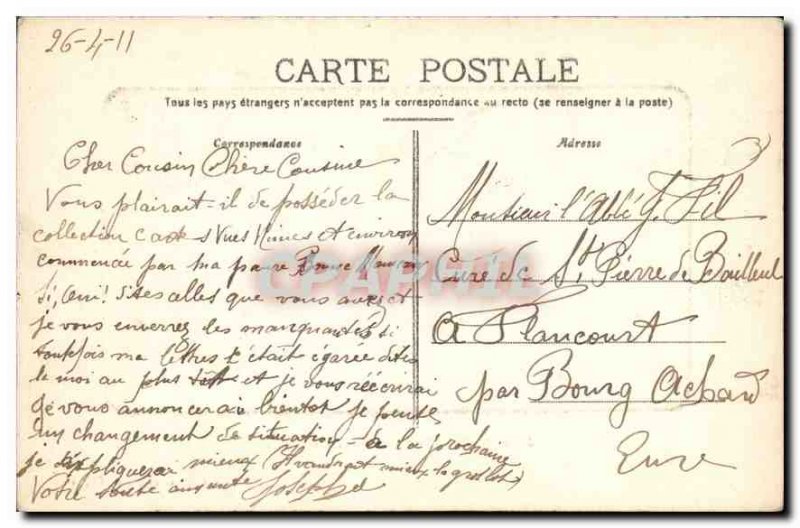 26-4-11
CARTE POSTALE
Tous les pays étrangers n'acceptent pas la correspondance au recto (se renseigner à la poste)
Correspondance
Cher Cousin Chère Cousine
Vous plairait-il de posséder la
collection Vues Nimes et environ
commencée par ma pauvre Bonne Maman
Si, oui! dites celles que vous avez et
je vous enverrez les manquantes si
toutefois ma lettre était égarée dites
le moi au plus tôt et je vous réécrirai
Je vous annoncerai bientôt je pense
un changement de situation - à la prochaine
je expliquerai mieux (Il vaudrait mieux
Votre toute
Adresse
Monsieur l'Abbé F. Fil
Curé de St Pierre de Bailleul
à Flancourt
par Bourg Achard
Eure